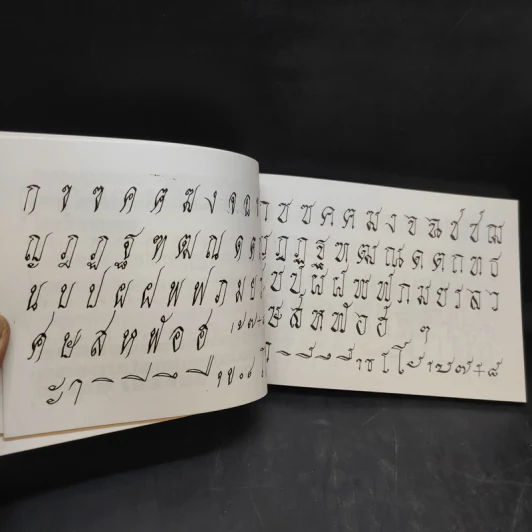 ก ข ฃ ค ฅ ฆ ง จ ฉ
ญ ฎ ฏ ฐ ฑ ฒ ณ ด ต
น บ ป ผ ฝ พ ฟ ภ ม ย
ศ ษ ส ห ฬ อ ฮ
ก ข ฃ ค ฅ ฆ ง จ ฉ ช ซ ฌ
ญ ฎ ฏ ฐ ฑ ฒ ณ ด ต ถ ท ธ
บ ป ผ ฝ พ ฟ ภ ม ย ร ล ว
ษ ส ห ฬ อ ฮ